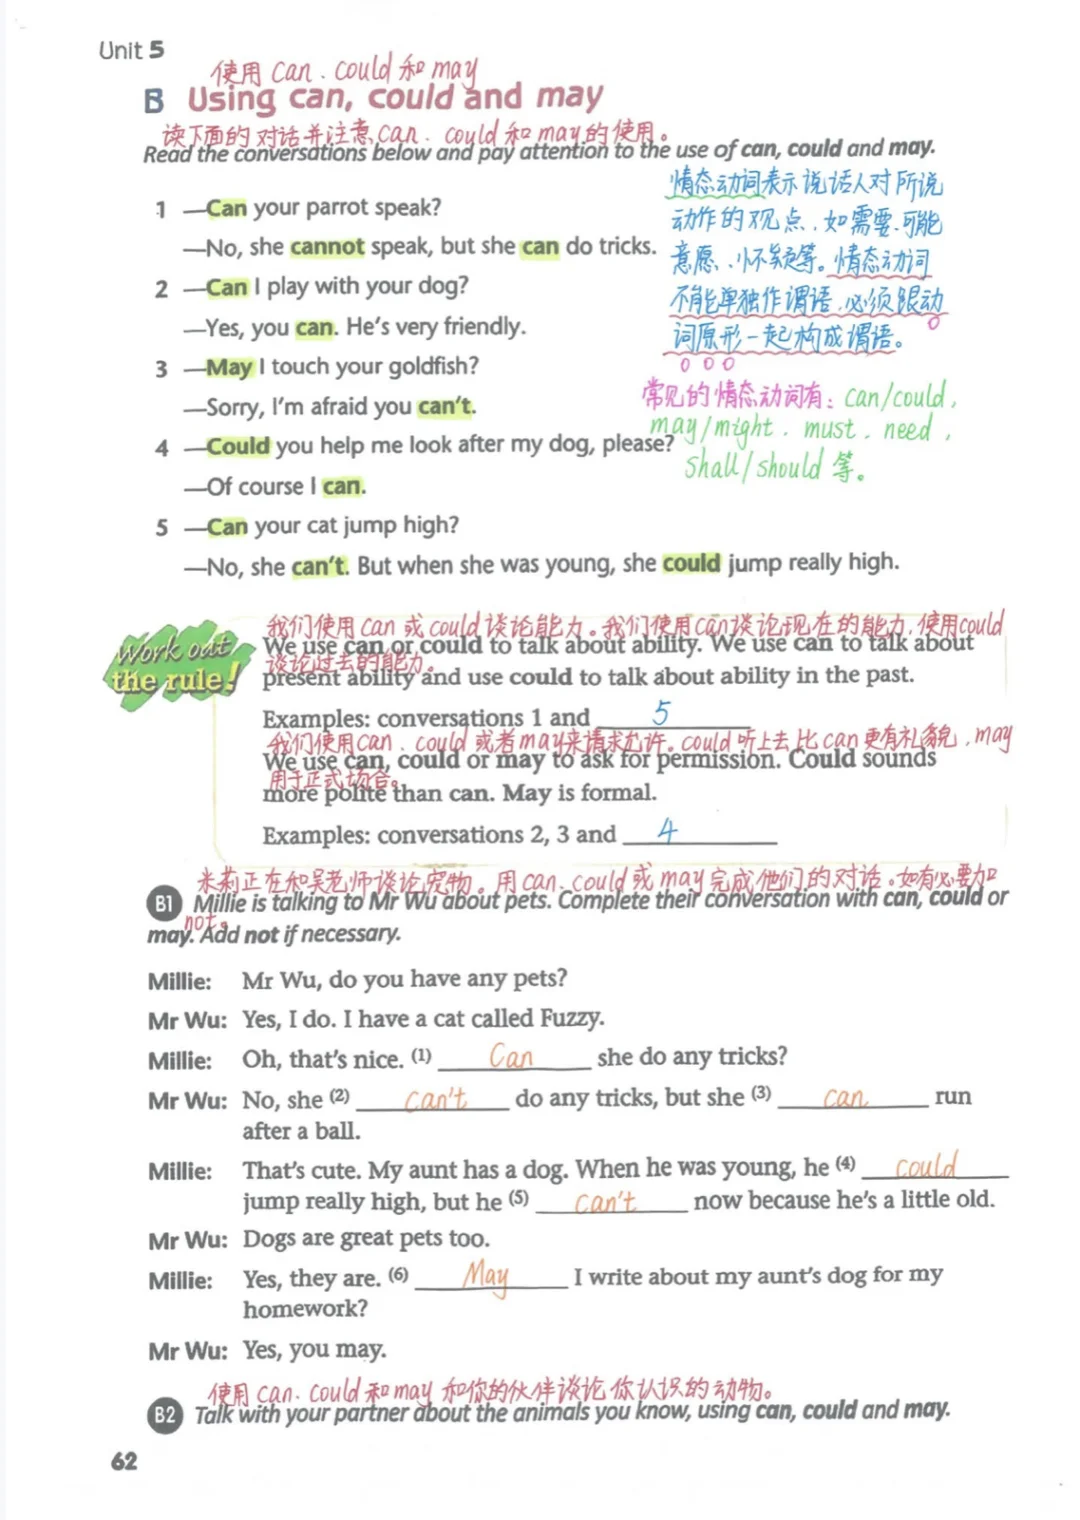 Unit 5
使用 can、could 和 may
B Using can, could and may
读下面的对话并注意 can、could 和 may 的使用。
Read the conversations below and pay attention to the use of can, could and may.
情态动词表示说话人对所说
动作的观点，如需要、可能
意愿、怀疑等。情态动词
不能单独作谓语，必须跟动
词原形一起构成谓语。
常见的情态动词有：can/could，
may/might．must．need，
shall/should 等。
1 —Can your parrot speak?
—No, she cannot speak, but she can do tricks.
2 —Can I play with your dog?
—Yes, you can. He's very friendly.
3 —May I touch your goldfish?
—Sorry, I'm afraid you can't.
4 —Could you help me look after my dog, please?
—Of course I can.
5 —Can your cat jump high?
—No, she can't. But when she was young, she could jump really high.
Work out
the rule!
我们使用 can 或 could 谈论能力。我们使用 can 谈论现在的能力，使用 could
We use can or could to talk about ability. We use can to talk about
谈论过去的能力。
present ability and use could to talk about ability in the past.
Examples: conversations 1 and 5
我们使用 can、could 或者 may 来请求允许。could 听上去比 can 更有礼貌，may
We use can, could or may to ask for permission. Could sounds
用于正式场合。
more polite than can. May is formal.
Examples: conversations 2, 3 and 4
米莉正在和吴老师谈论宠物。用 can、could 或 may 完成他们的对话。如有必要加
B1 Millie is talking to Mr Wu about pets. Complete their conversation with can, could or
not。
may. Add not if necessary.
Millie: Mr Wu, do you have any pets?
Mr Wu: Yes, I do. I have a cat called Fuzzy.
Millie: Oh, that's nice. (1) Can she do any tricks?
Mr Wu: No, she (2) can't do any tricks, but she (3) can run
after a ball.
Millie: That's cute. My aunt has a dog. When he was young, he (4) could
jump really high, but he (5) can't now because he's a little old.
Mr Wu: Dogs are great pets too.
Millie: Yes, they are. (6) May I write about my aunt's dog for my
homework?
Mr Wu: Yes, you may.
使用 can、could 和 may 和你的伙伴谈论你认识的动物。
B2 Talk with your partner about the animals you know, using can, could and may.
62